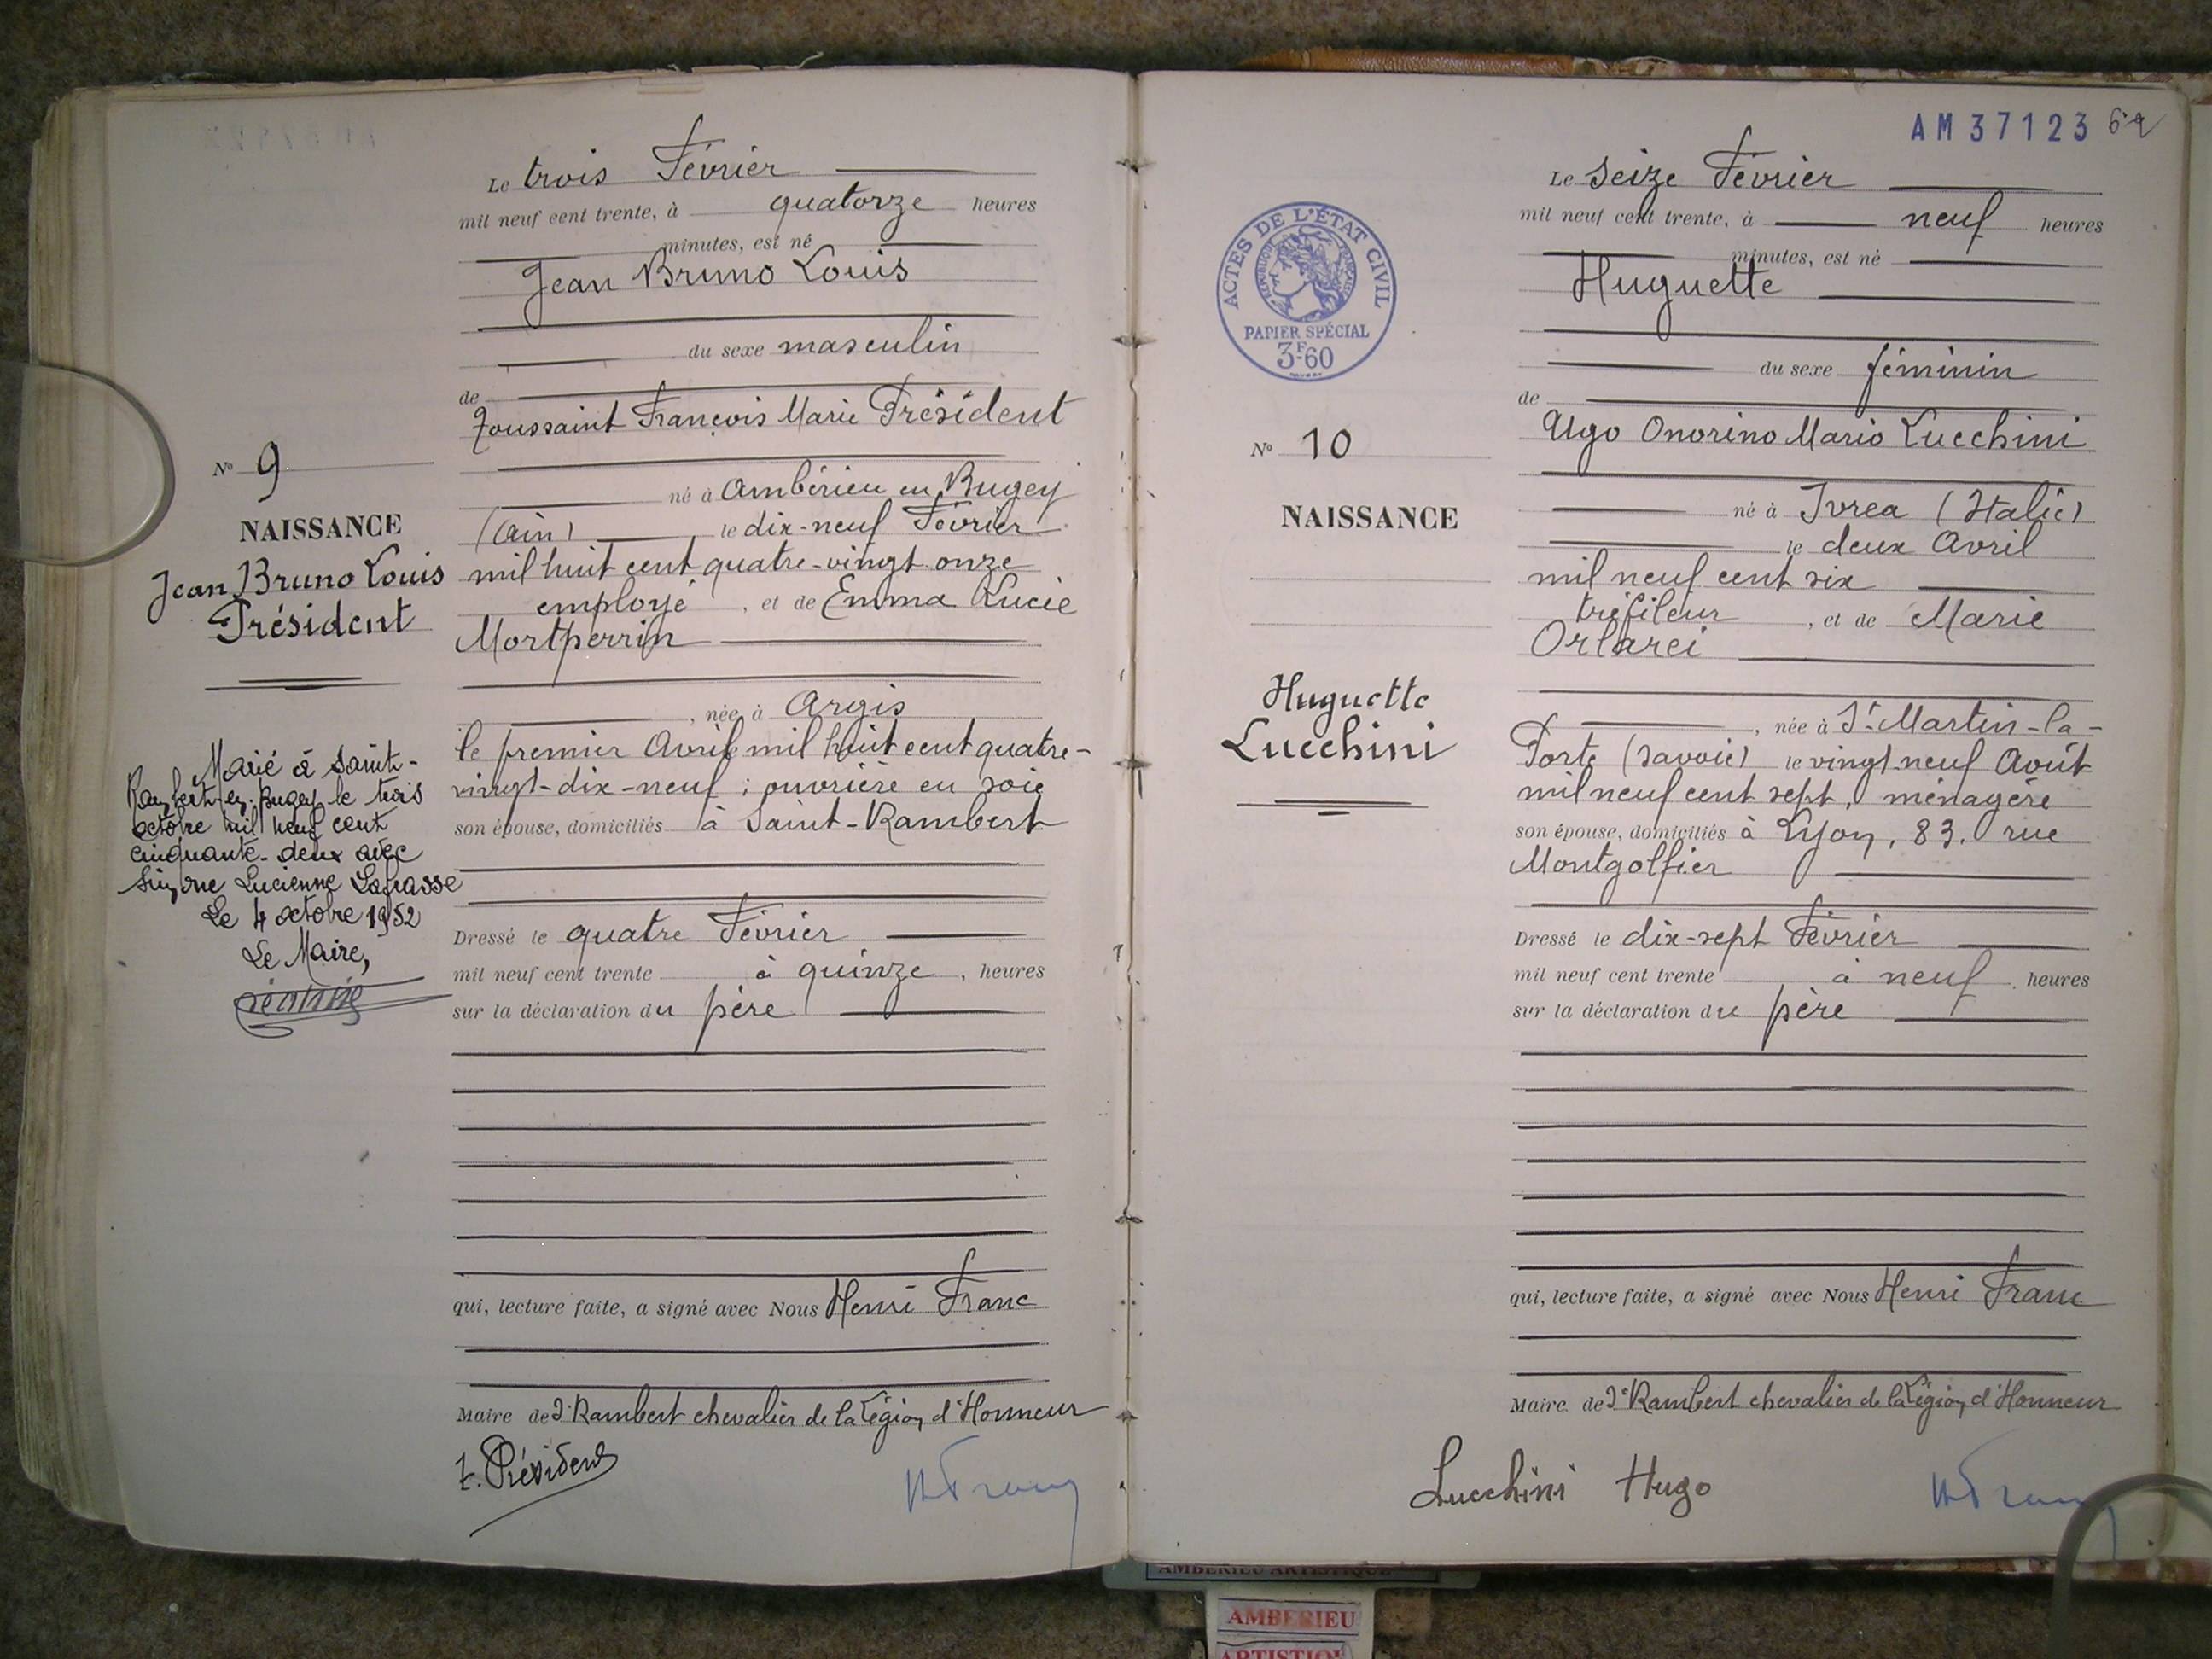 Le trois Février
mil neuf cent trente, à quatorze heures
minutes, est né
Jean Bruno Louis
du sexe masculin
de
Toussaint François Marie Président
né à Ambérieu en Bugey
(Ain) le dix-neuf Février
mil huit cent quatre-vingt onze
employé, et de Emma Lucie
Montperrin
, née à Argis
le premier Avril mil huit cent quatre-
vingt-dix-neuf ; ouvrière en soie
son épouse, domiciliés à Saint-Rambert
Dressé le quatre Février
mil neuf cent trente à quinze, heures
sur la déclaration du père
qui, lecture faite, a signé avec Nous Henri Franc
Maire de St Rambert chevalier de la Légion d'Honneur
t. Président
HFranc
No 9
NAISSANCE
Jean Bruno Louis
Président
Marié à Saint-
Rambert-en-Bugey le trois
octobre mil neuf cent
cinquante-deux avec
Simone Lucienne Lafrasse
Le 4 octobre 1952
Le Maire,
AM 37123
Le seize Février
mil neuf cent trente, à neuf heures
minutes, est né
Huguette
du sexe féminin
de
Ugo Onorino Mario Lucchini
né à Ivrea (Italie)
le deux Avril
mil neuf cent six
tréfileur, et de Marie
Orlarei
, née à St Martin-la-
Porte (Savoie) le vingt-neuf Août
mil neuf cent sept, ménagère
son épouse, domiciliés à Lyon, 83. rue
Montgolfier
Dressé le dix-sept Février
mil neuf cent trente à neuf heures
sur la déclaration du père
qui, lecture faite, a signé avec Nous Henri Franc
Maire de St Rambert chevalier de la Légion d'Honneur
Lucchini Hugo
HFranc
ACTES DE L'ÉTAT CIVIL
RÉPUBLIQUE FRANÇAISE
PAPIER SPÉCIAL
3F.60
No 10
NAISSANCE
Huguette
Lucchini
AMBERIEU ARTISTIQUE
AMBERIEU